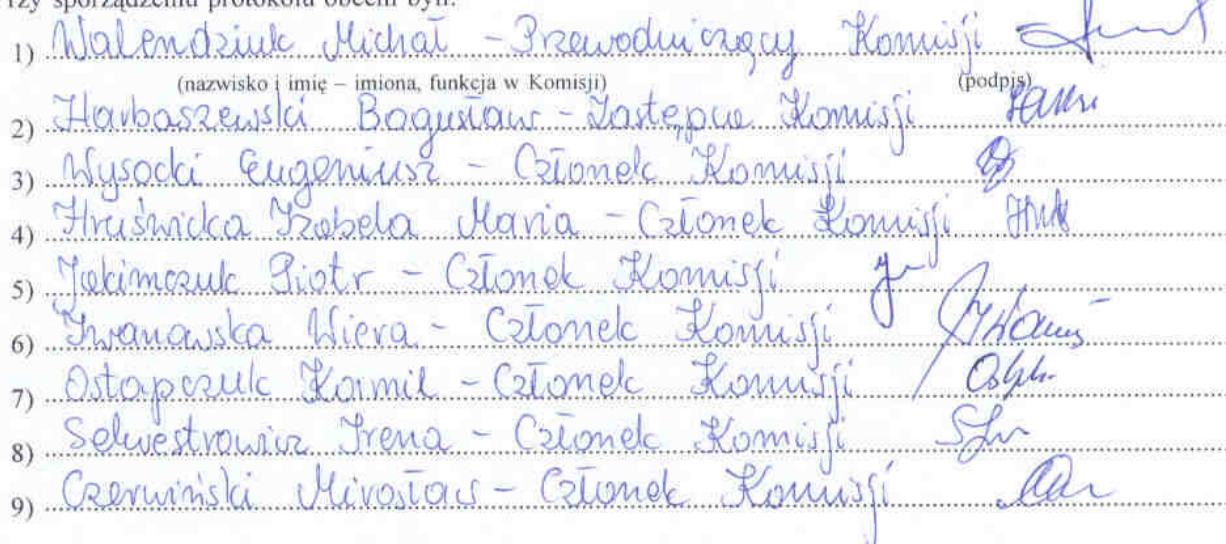 rzy sporządzeniu protokołu obecni byli:
1) Walendziuk Michał - Przewodniczący Komisji
(nazwisko i imię – imiona, funkcja w Komisji) (podpis)
2) Harbaszewski Bogusław - Zastępca Komisji
3) Wysocki Eugeniusz - Członek Komisji
4) Hruświcka Izabela Maria - Członek Komisji
5) Jakimczuk Piotr - Członek Komisji
6) Iwanowska Wiera - Członek Komisji
7) Ostapczuk Kamil - Członek Komisji
8) Selwestrowicz Irena - Członek Komisji
9) Czerwiński Mirosław - Członek Komisji